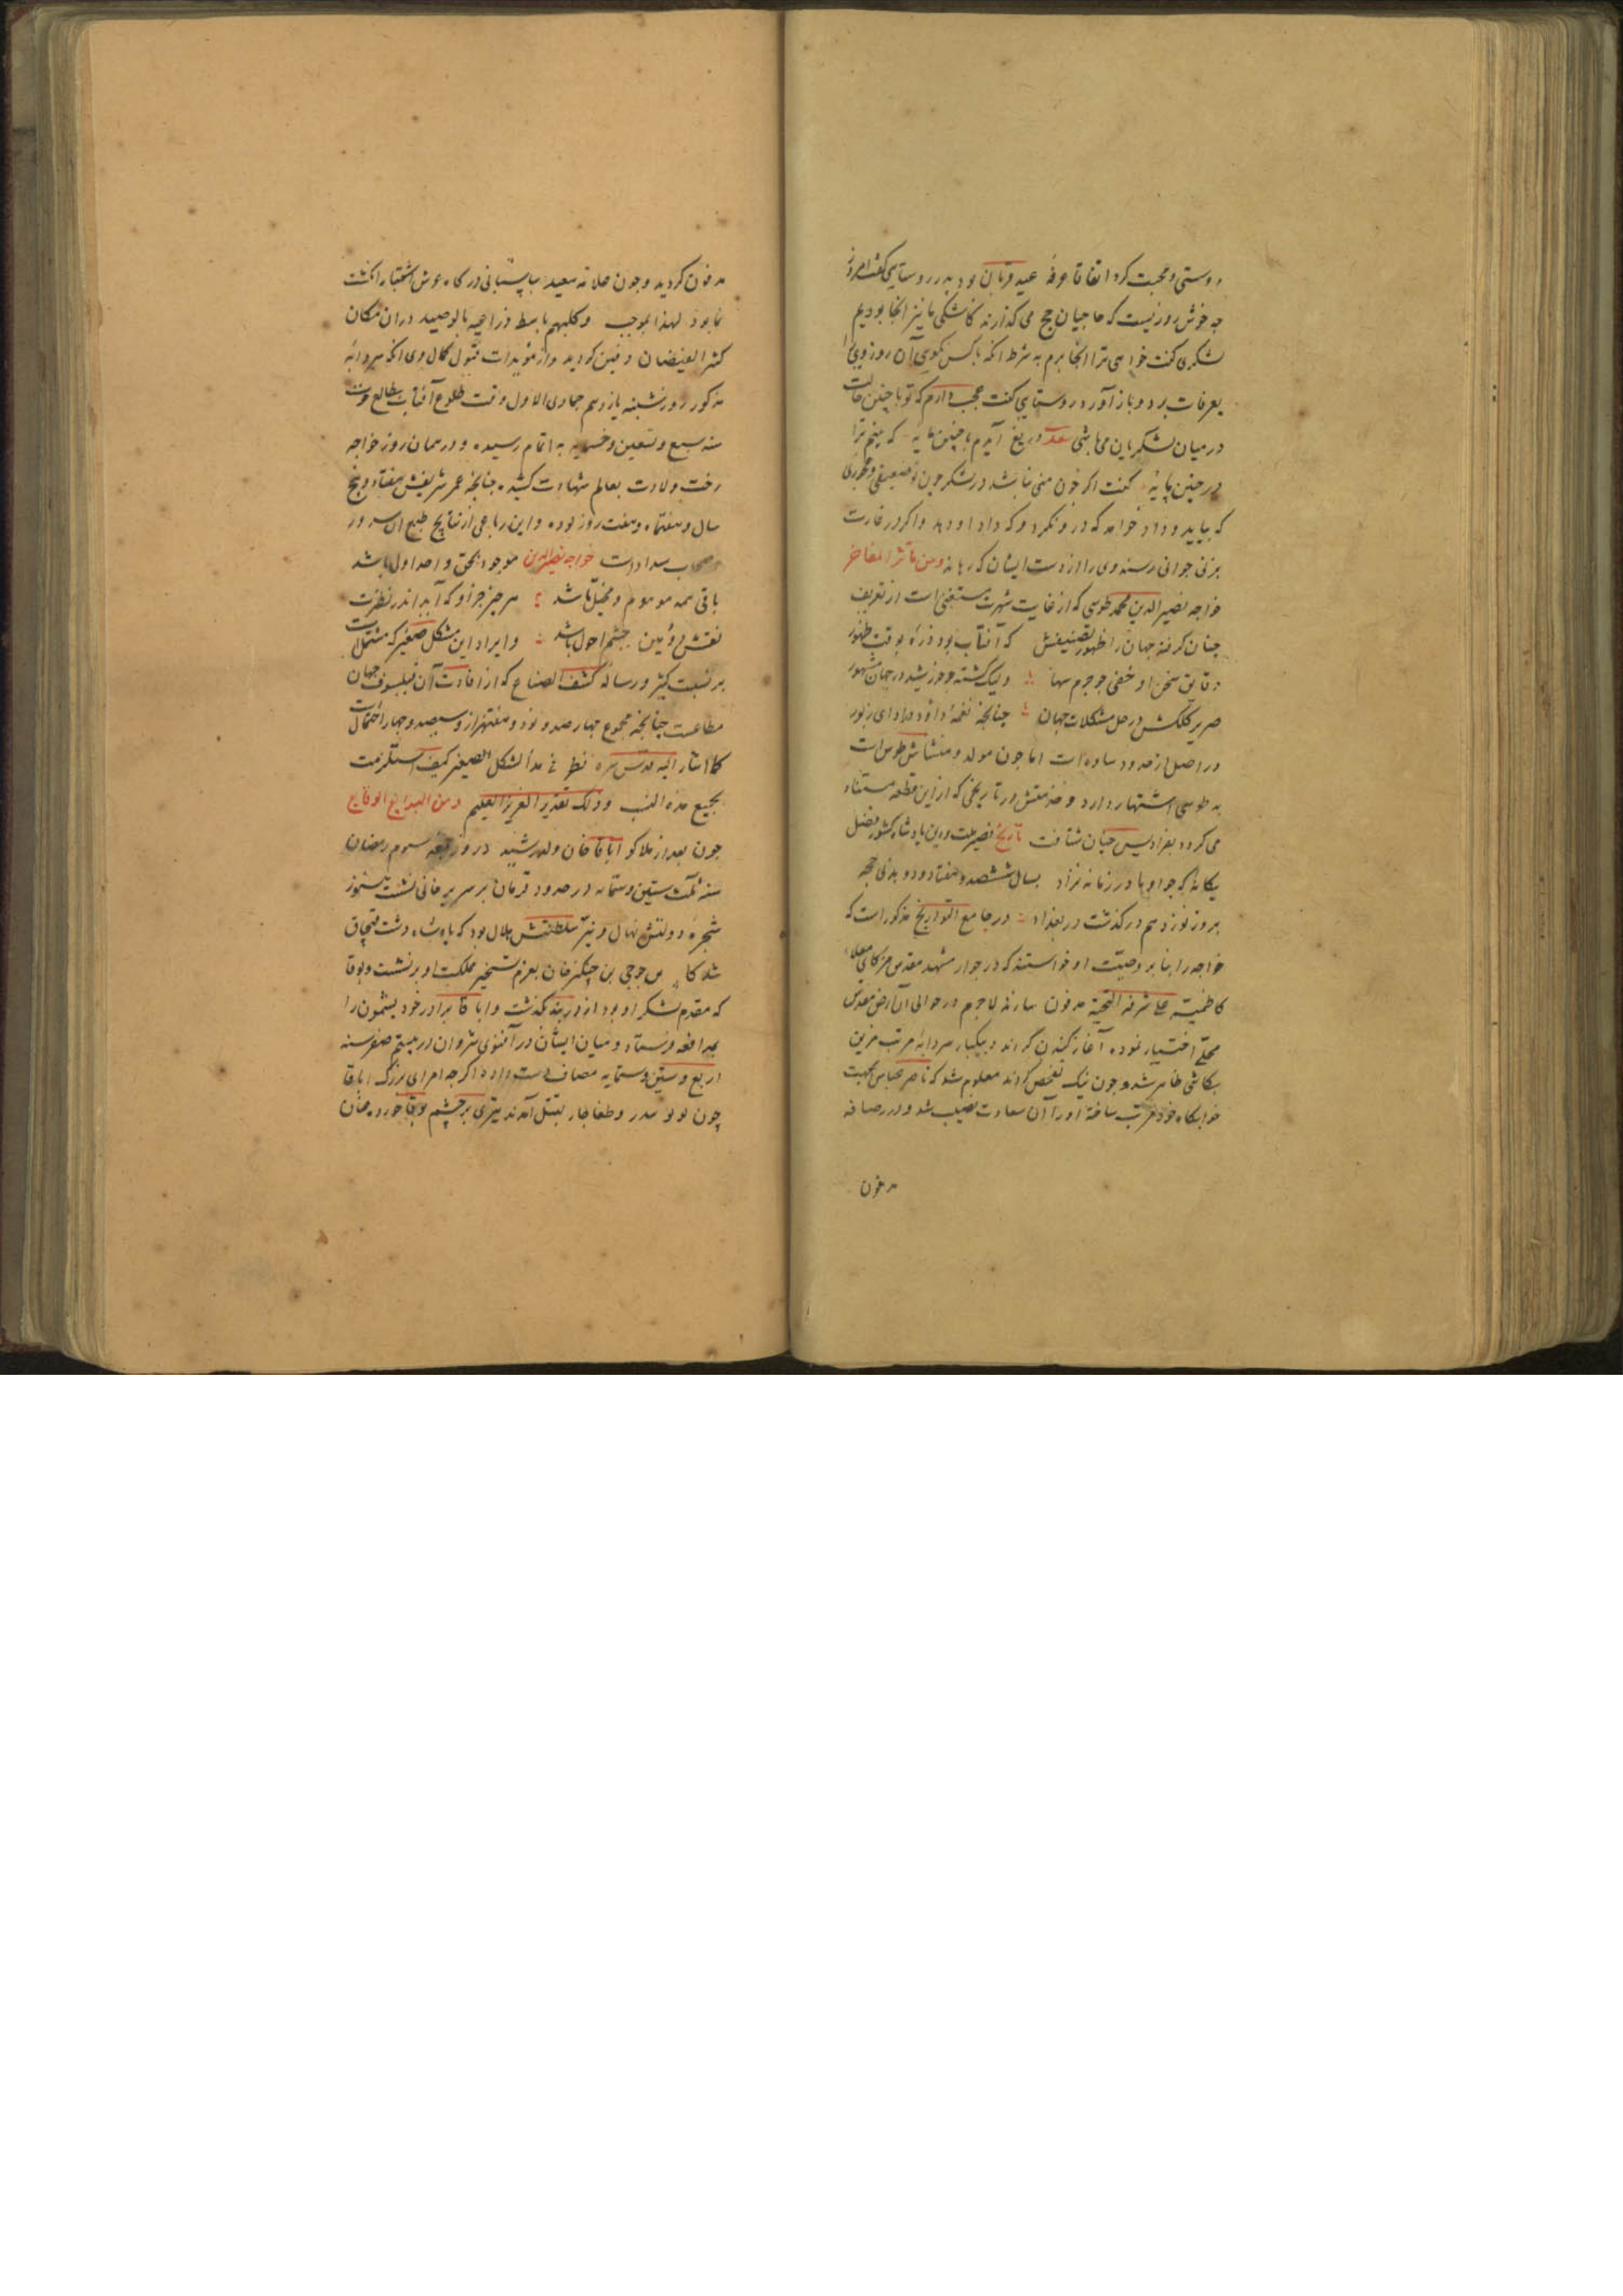 دوستی و محبت کرد اتفاقا عرفهٔ عید قربان بود پدر روستایی گفت امروز
چه خوش روزیست که حاجیان حج می کذارند کاشکی ما نیز انجا بودیم
لشکری گفت خواهی ترا انجا برم به شرط انکه با کس نکویی آن روز ویرا
بعرفات برد و باز آورد روستایی گفت عجب دارم که تو با چنین حالت
در میان لشکریان می باشی دریغ آیدم با چنین مایه که بینم ترا
در چنین پایهٔ گفت اکر چون منی نباشد در لشکر چون تو ضعیفی و عجوزی
که بیاید و داد خواهد که درو نکرد و که داد او دهد و اکر در غارت
بزنی جوانی رسند وی را از دست ایشان که رهاند ومن مآثر المفاخر
خواجه نصیر الدین محمد طوسی که از غایت شهرت مستغنی است از تعریف
چنان کرفته جهان را ظهور تصنیفش که آفتاب بود ذره بوقت ظهور
دقایق سخن او خفی چو جرم سها ولیک کشته چو خورشید در جهان مشهور
صریر کلکش در حل مشکلات جهان چنانچه نغمهٔ داود در ادای زبور
در اصل از حدود ساوه است اما چون مولد و منشاش طوس است
به طوسی اشتهار دارد و تاریخی که از این قطعه مستفاد
می کردد بفرادیس جنان شتافت تاریخ نصیر ملت و دین پادشاه کشور فضل
یکانه که چو او مادر زمانه نزاد بسال ششصد و هفتاد و دو بذی حجه
بروز نوزدهم درکذشت در بغداد در جامع التواریخ مذکور است که
خواجه را بنا بر وصیت او خواستند که در جوار مشهد مقدس
کاظمیه علی مشرفه التحیه مدفون سازند لاجرم در حوالی آن ارض مقدس
محلی اختیار نموده آغاز کندن کردند و بیکبار سردابه مرتب مزین
بکاشی ظاهر شد و چون نیک تفحص کردند معلوم شد که ناصر عباس بجهت
خوابکاه خود مرتب ساخته او را آن سعادت نصیب نشد و در رصافه
مدفون
مدفون کردید و چون علامه سعید بپاسبانی درکاه عرش اشتباه
نما بود لهذا بموجب وکلبهم باسط ذراعیه بالوصید دران مکان
کثیر الفیضان دفین کردید و از مؤیدات قبول کمال وی انکه سردابهٔ
مذکور روز شنبه یازدهم جمادی الاول وقت طلوع آفتاب بطالع
سنه سبع و تسعین و خمسمایه به اتمام رسیده و در همان روز خواجه
رخت ولادت بعالم شهادت کشیده چنانچه عمر شریفش هفتاد و پنج
سال و هفتماه و هفت روز بوده و این رباعی از نتایج طبع ان سرور
خواجه نصیر الدین موجود بحق واحد اول باشد
باقی همه موهوم و مخیل باشد هر چیز جز او که آید اندر نظرت
نقش دوئمین چشم احول باشد و ایراد این شکل صغیر که مشتمل است
بر نسبت کثیر و رساله کشف القناع که از افادت آن فیلسوف جهان
مطاعست چنانچه مجموع چهارصد و نود و هفتهزار و سیصد و چهار احتمال است
کما اشار الیه قدس سره نظر فی هذا الشکل الصغیر کیف استلزمت
بجمیع هذه النسب وذلک تقدیر العزیز العلیم ومن البدایع الوقایع
چون بعد از هلاکو اباقا خان ولد رشید در روز جمعه سوم رمضان
سنه ثلث ستین و ستمایه در حدود بر سریر خانی نشست هنوز
شجره دولتش نهال و نیر سلطنتش هلال بود که پادشاه دشت قبچاق
بن جوجی بن چنکیز خان بعزم تسخیر مملکت او برنشست و بوقا
که مقدم لشکر او بود از دربند بکذشت و اباقا برادر خود یشموت را
بمدافعه فرستاد و میان ایشان در آقسوی شروان در بیستم صفر سنه
اربع و ستین و ستمایه مصاف دست داده اکرچه امرای بزرک اباقا
چون و طغاجار بقتل آمدند تیری بر چشم بوقا خورد